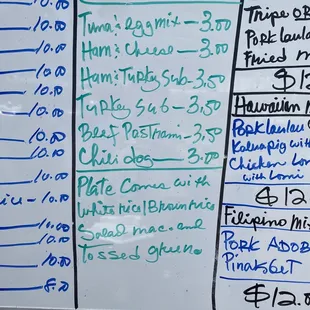 10.00
10.00
10.00
10.00
10.00
10.00
10.00
10.00
10.00
10.00
10.00
Tuna & egg mix - 3.00
Ham & Cheese - 3.00
Ham & Turky Sub - 3.50
Turky Sub - 3.50
Beef Pastrami - 3.50
Chili dog - 3.00
Plate Comes with
white rice/Brown rice
Salad mac and
Tossed green
Tripe OR
Pork laulau
Fried
$12
Hawaiian
Pork laulau
Kalua pig with
Chicken Lon
with Lomi
$12
Filipino Mix
PORK ADOB
PinakbeT
$12.0